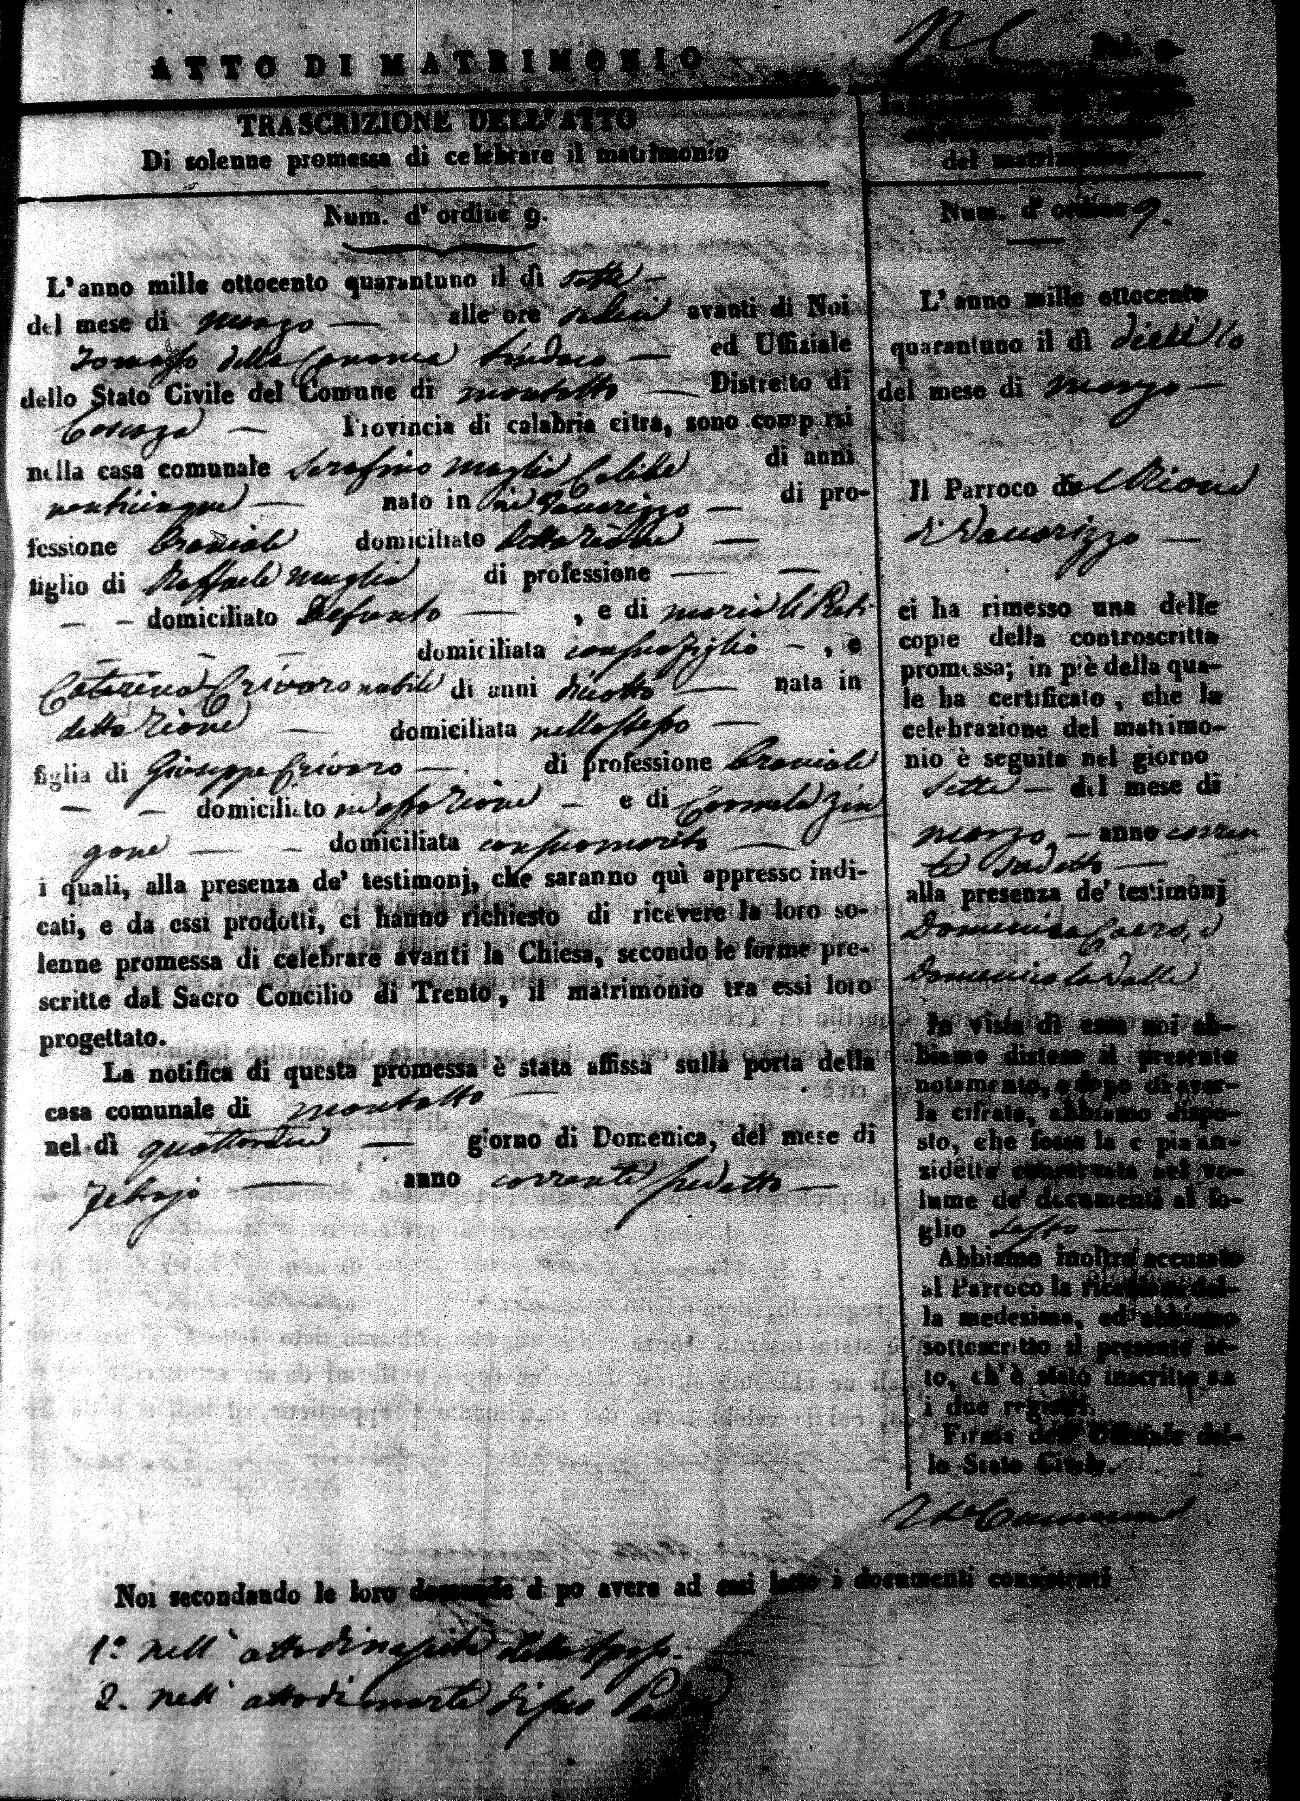 ATTO DI MATRIMONIO
TRASCRIZIONE DELL'ATTO
Di solenne promessa di celebrare il matrimonio
Num. d'ordine 9.
L'anno mille ottocento quarantuno il dì sette
del mese di marzo alle ore sedici avanti di Noi
Tommaso della Cananea Sindaco ed Uffiziale
dello Stato Civile del Comune di montalto Distretto di
Cosenza Provincia di calabria citra, sono comparsi
nella casa comunale Serafino Maglia Celibe di anni
venticinque nato in Vaccarizzo di pro-
fessione Bracciale domiciliato detto Rione
figlio di Raffaele Maglia di professione
domiciliato Defunto , e di maria
domiciliata con suo figlio , e
Catarina Crivaro nubile di anni diciotto nata in
detto Rione domiciliata nello stesso
figlia di Giuseppe Crivaro di professione Bracciale
domiciliato in esso Rione e di Carmela Zin
gone domiciliata con suo marito
i quali, alla presenza de' testimonj, che saranno quì appresso indi-
cati, e da essi prodotti, ci hanno richiesto di ricevere la loro so-
lenne promessa di celebrare avanti la Chiesa, secondo le forme pre-
scritte dal Sacro Concilio di Trento, il matrimonio tra essi loro
progettato.
La notifica di questa promessa è stata affissa sulla porta della
casa comunale di montalto
nel dì quattordici giorno di Domenica, del mese di
Febrajo anno corrente sudetto
Noi secondando le loro domande dopo avere ad essi letto i documenti consistenti
1.° nell' atto di nascita dello sposo.
2. nell' atto di morte di suo Padre
del matrimonio
Num. d'ordine 9.
L'anno mille ottocento
quarantuno il dì dieci 10
del mese di marzo
Il Parroco del Rione
di Vaccarizzo
ci ha rimesso una delle
copie della controscritta
promessa; in piè della qua-
le ha certificato, che la
celebrazione del matrimo-
nio è seguita nel giorno
sette del mese di
marzo anno corren
te sudetto
alla presenza de' testimonj
Domenico
Domenico La Valle
In vista di essa noi ab-
biamo disteso il presente
notamento, e dopo di aver-
la cifrata, abbiamo dispo-
sto, che fosse la copia an-
zidetta conservata nel vo-
lume de' documenti al fo-
glio sesto
Abbiamo inoltre accusato
al Parroco la ricezione del-
la medesima, ed abbiamo
sottoscritto il presente at-
to, ch'è stato inscritto su
i due registri.
Firma dell' Uffiziale del-
lo Stato Civile.